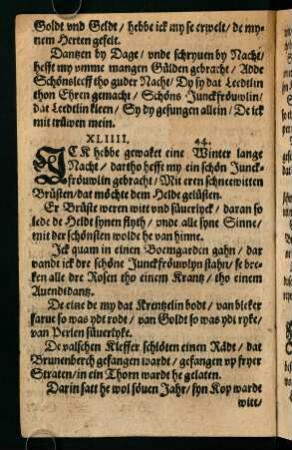 Goldt vnd Geldt / hebbe ick my se erwelt / de my-
nem Herten gefelt.
Dantzen by Dage / vnde schryuen by Nacht /
hefft my vmme mangen Gülden gebracht / Adde
Schönsleeff tho guder Nacht / Dy sy dat Leedtlin
thon Ehren gemacht / Schöns Junckfröuwlin /
dat Leedtlin kleen / Sy dy gesungen allein / De ick
mit trüwen mein.
XLIIII. 44.
ICK hebbe gewaket eine Winter lange
Nacht / dartho hefft my ein schön Junck-
fröuwlin gebracht / Mit eren schneewitten
Brüsten / dat möchte dem Helde gelüsten.
Er Brüste weren witt vnd süuerlyck / daran so
lede de Heldt synen flyth / vnde alle syne Sinne /
mit der schönsten wolde he van hinne.
Ick quam in einen Boemgarden gahn / dar
vandt ick dre schöne Junckfröuwlyn stahn / se bre-
ken alle dre Rosen tho einem Krantz / tho einem
Auendtdantz.
De eine de my dat Krentzelin bodt / van bleker
farue so was ydt rodt / van Goldt so was ydt ryke /
van Perlen süuerlyke.
De valschen Kleffer schlöten einen Rädt / dat
Brunenberch gefangen wardt / gefangen vp fryer
Straten / in ein Thorn wardt he gelaten.
Darin satt he wol söuen Jahr / syn Kop wardt
witt /